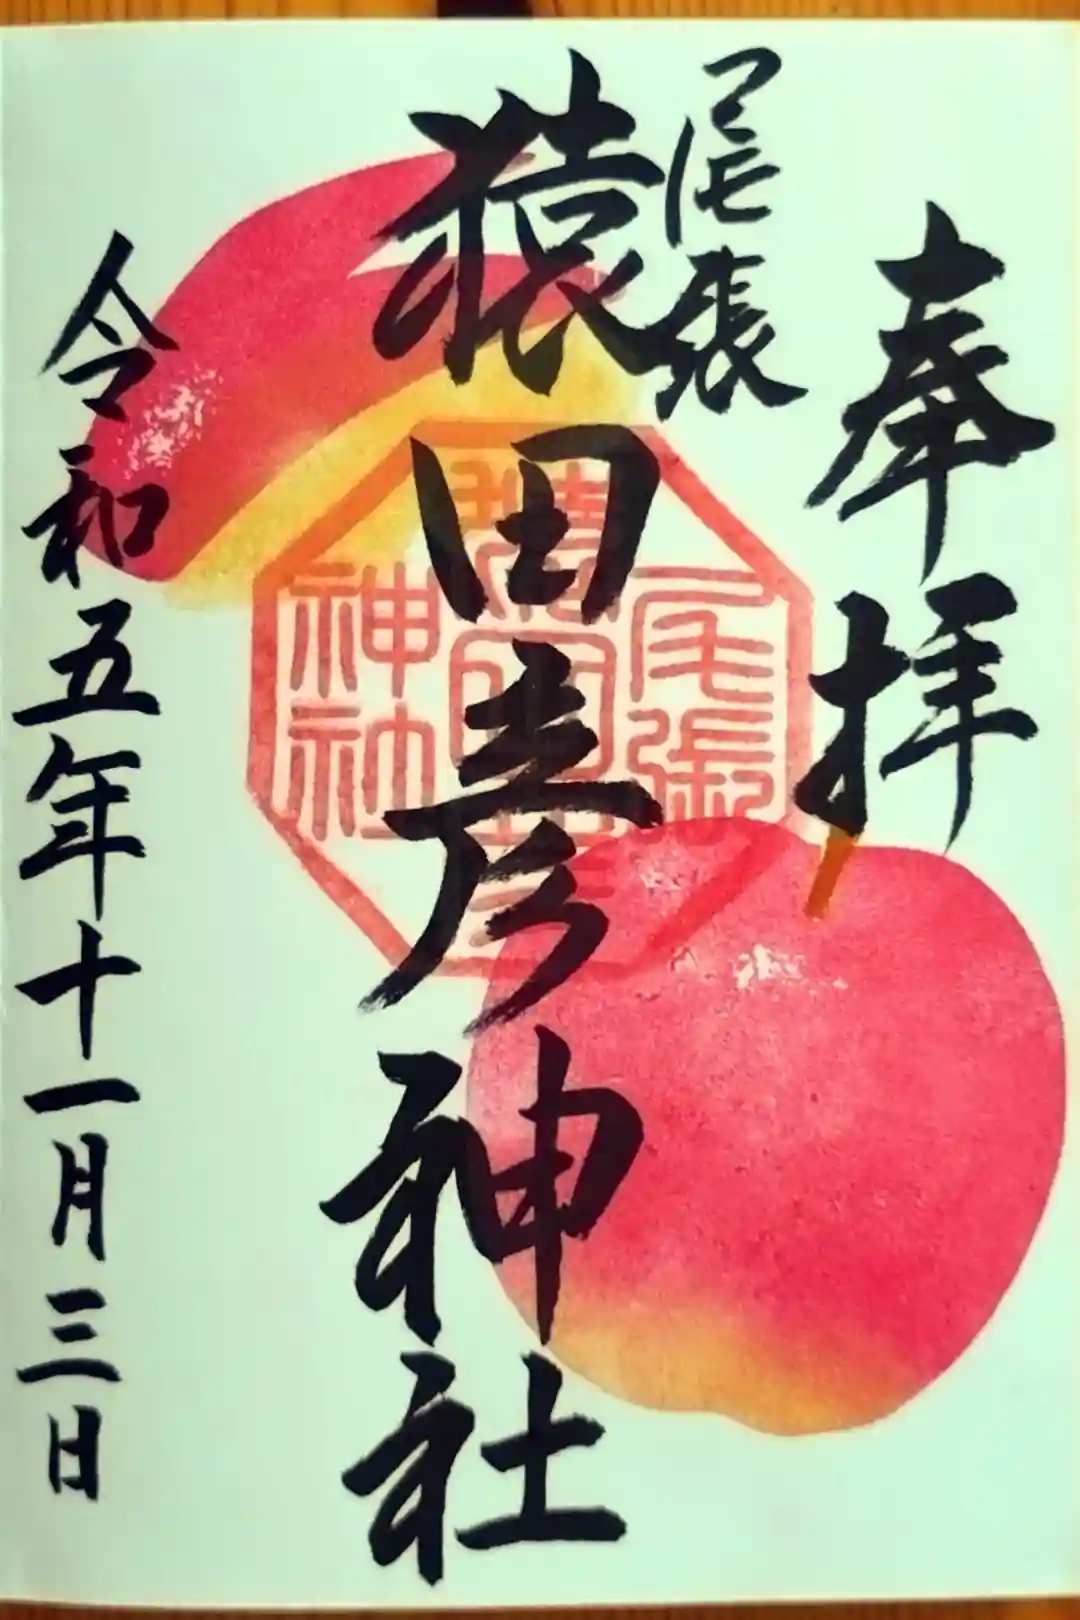 奉拝
尾張
猿田彦神社
尾張
神社
令和五年十一月三日